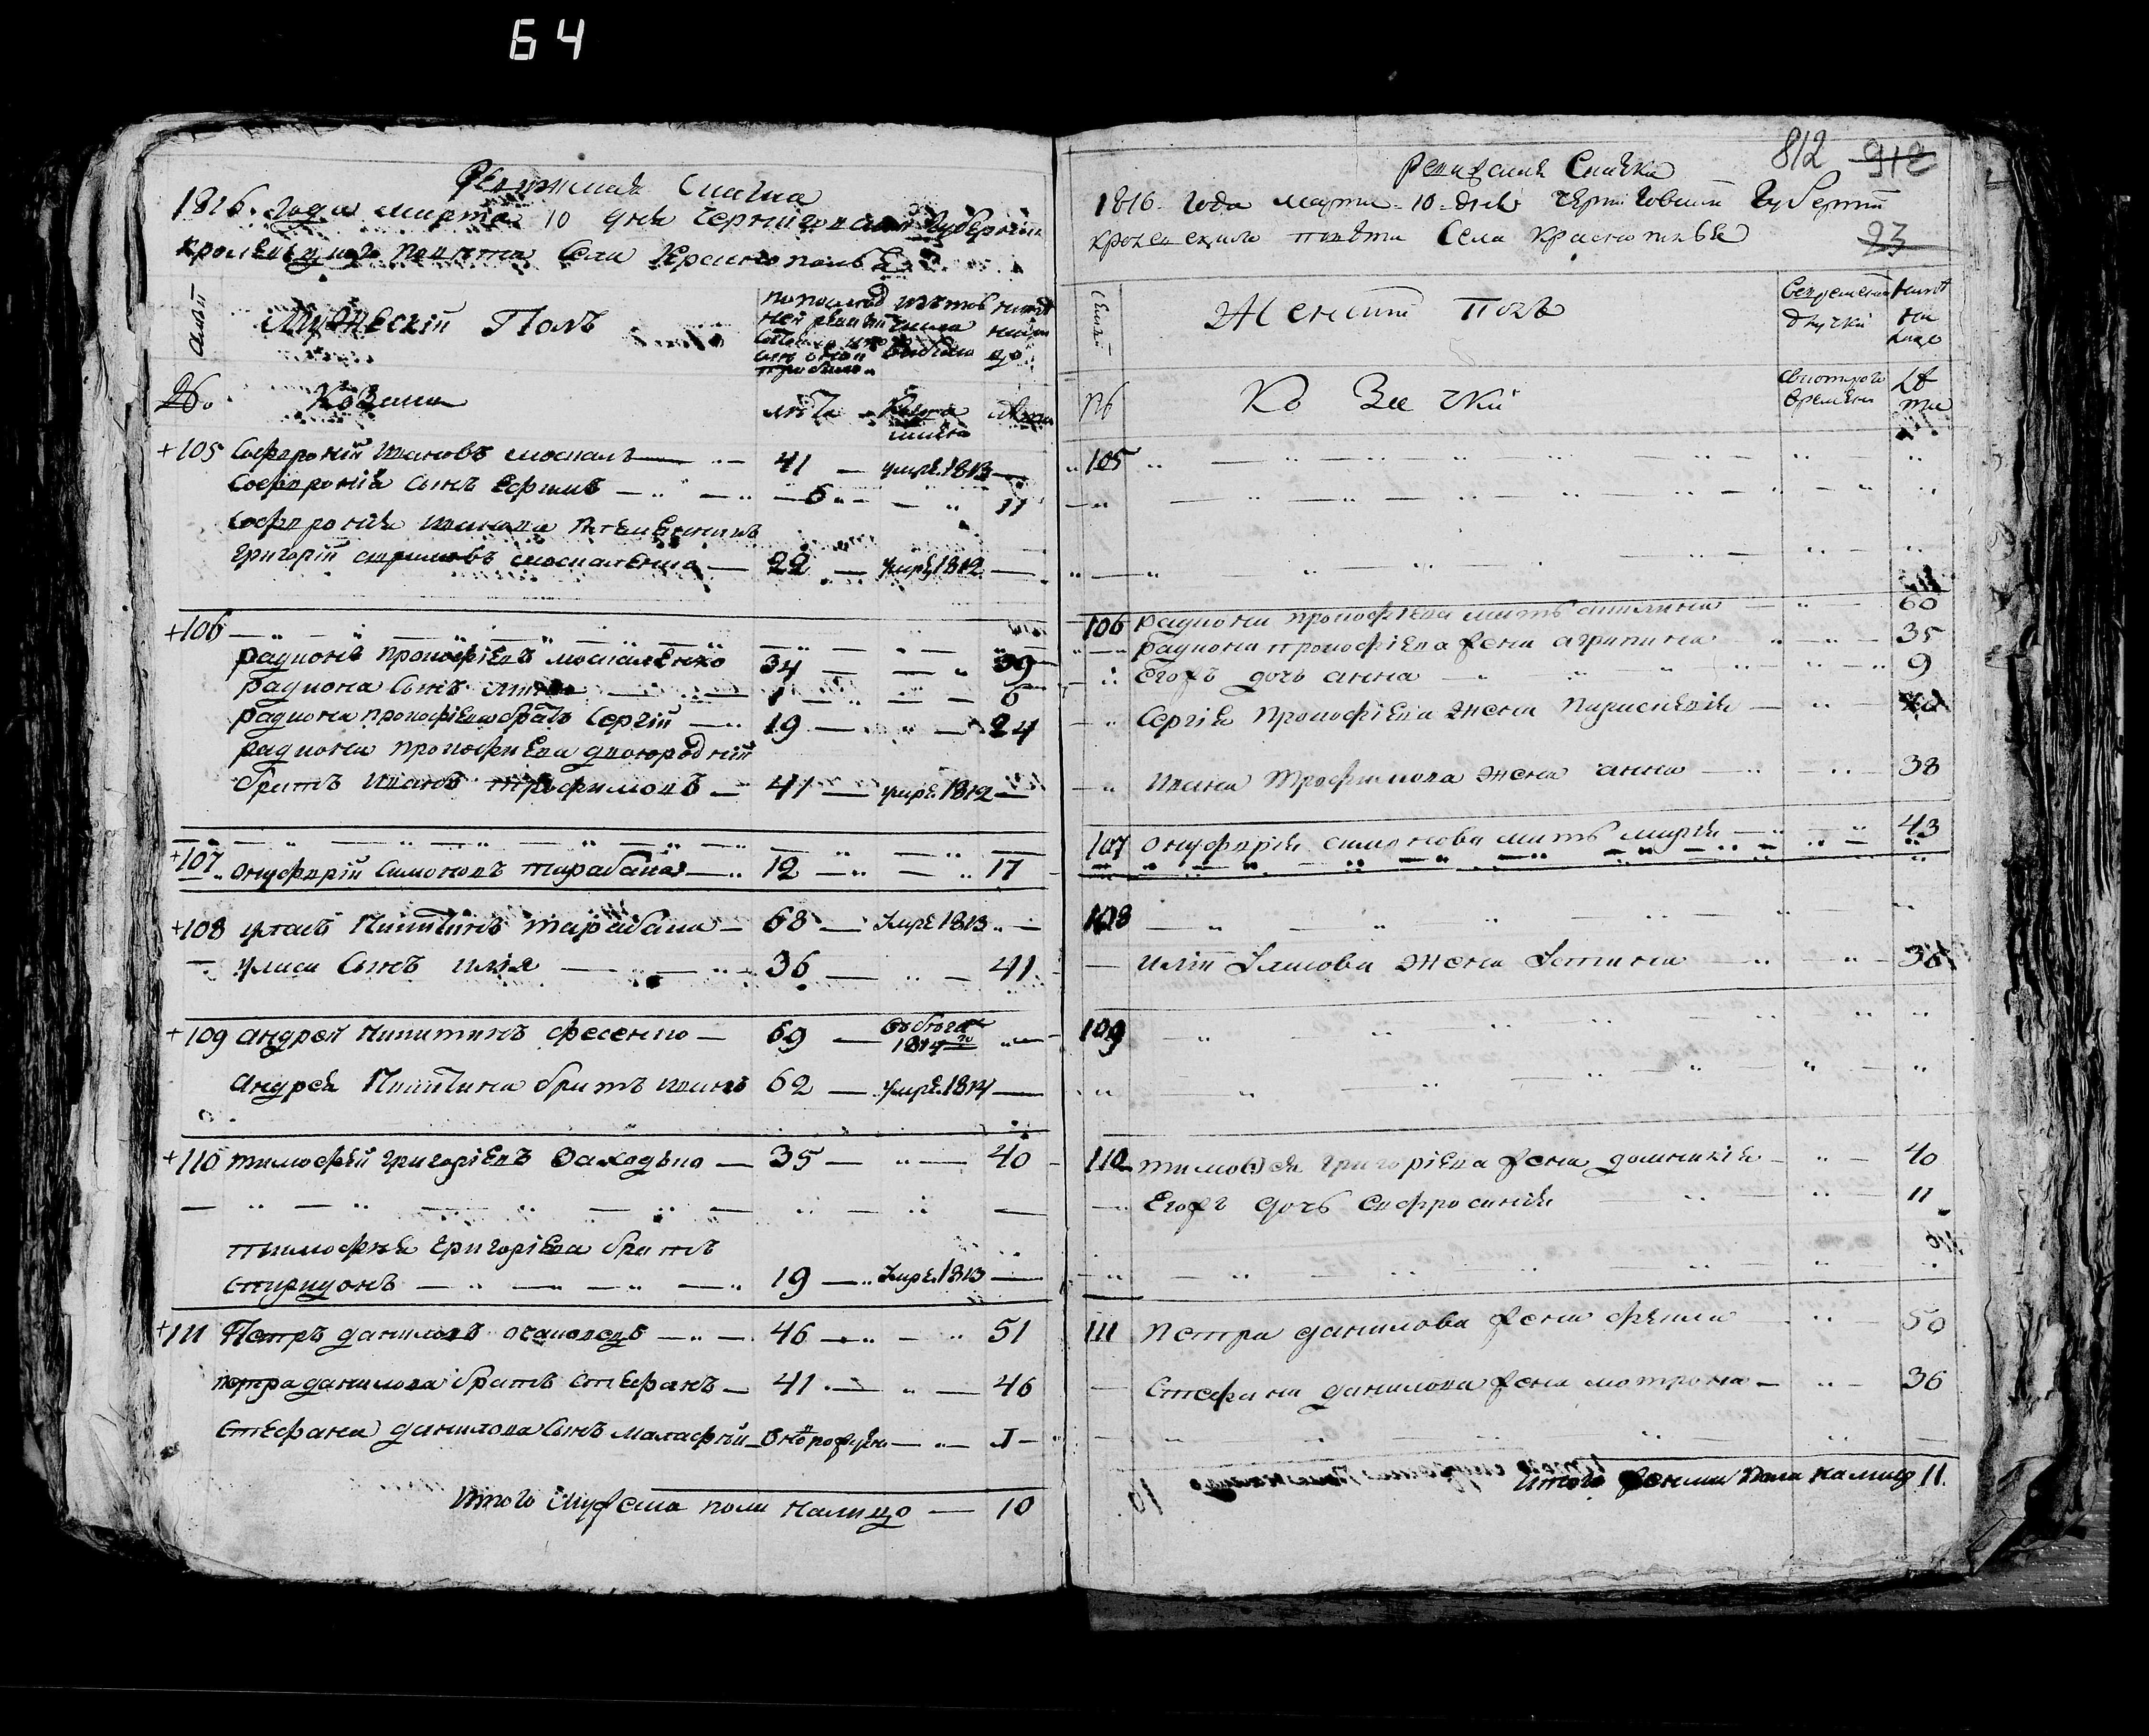 64
Ревижская Скаска
1816. года марта 10 дня Черниговской Губернии
кролевецкого повета Села Краснополья
Мужеский Полъ
по последней ревизии состояло
изъ того числа выбыло
ныне на лицо
№
Козаки
лѣта
Когда имянно
лѣта
+105 Софроний Ивановъ москал 41 — умре. 1813 —
Софрония сынъ Ефимъ — 6 — 11
Софрония Иванова племенникъ
Григорий москаленко — 22 — умре 1812 —
+106
радионъ прокофіевъ москаленко 34 — 39
радиона сынъ 1 — 6
радиона прокофіева братъ Сергій — 19 — 24
радиона прокофиева двоюродній
братъ иванъ трофимовъ — 41 — умре. 1812 —
+107 онуфрій Симоновъ тарабана — 12 — 17
+108 Никитинъ тарабана — 68 — умре 1813 —
сынъ илія — 36 — 41
+109 андрей никитинъ фесенко — 69 — 1814го
андрея Никитина братъ иванъ 62 — умре. 1814 —
+110 тимофей григоріевъ Заходько — 35 — 40
тимофея григоріева братъ
спиридонъ — 19 — умре. 1813 —
+111 Петръ даниловъ — 46 — 51
петра данилова братъ стефанъ — 41 — 46
стефана данилова сынъ малафѣй — 1
Итого мужеска пола налицо — 10
812 912
ревизская Скаска
1816 года марта 10 дня Черниговской Губернии
кролевецкого повета Села краснополья
23
Женский полъ
Во временной отлучки
ныне на лицо
№
Козачки
Съ которого времени
лѣта
105
106 радиона прокофіева мать 60
радиона прокофіева жена агрипина 35
Егожъ дочь анна — 9
Сергія Прокофіева жена параскевія
ивана Трофимова жена анна — 38
107 онуфрія симонова мать марія — 43
108
иліи жена Устина — 36
109
110 тимофея григоріева жена домникія — 40
Егожъ дочь Евфросинія 11
111 петра данилова жена фекла 50
стефана данилова жена мотрона — 36
Итого женска пола налицо 11.